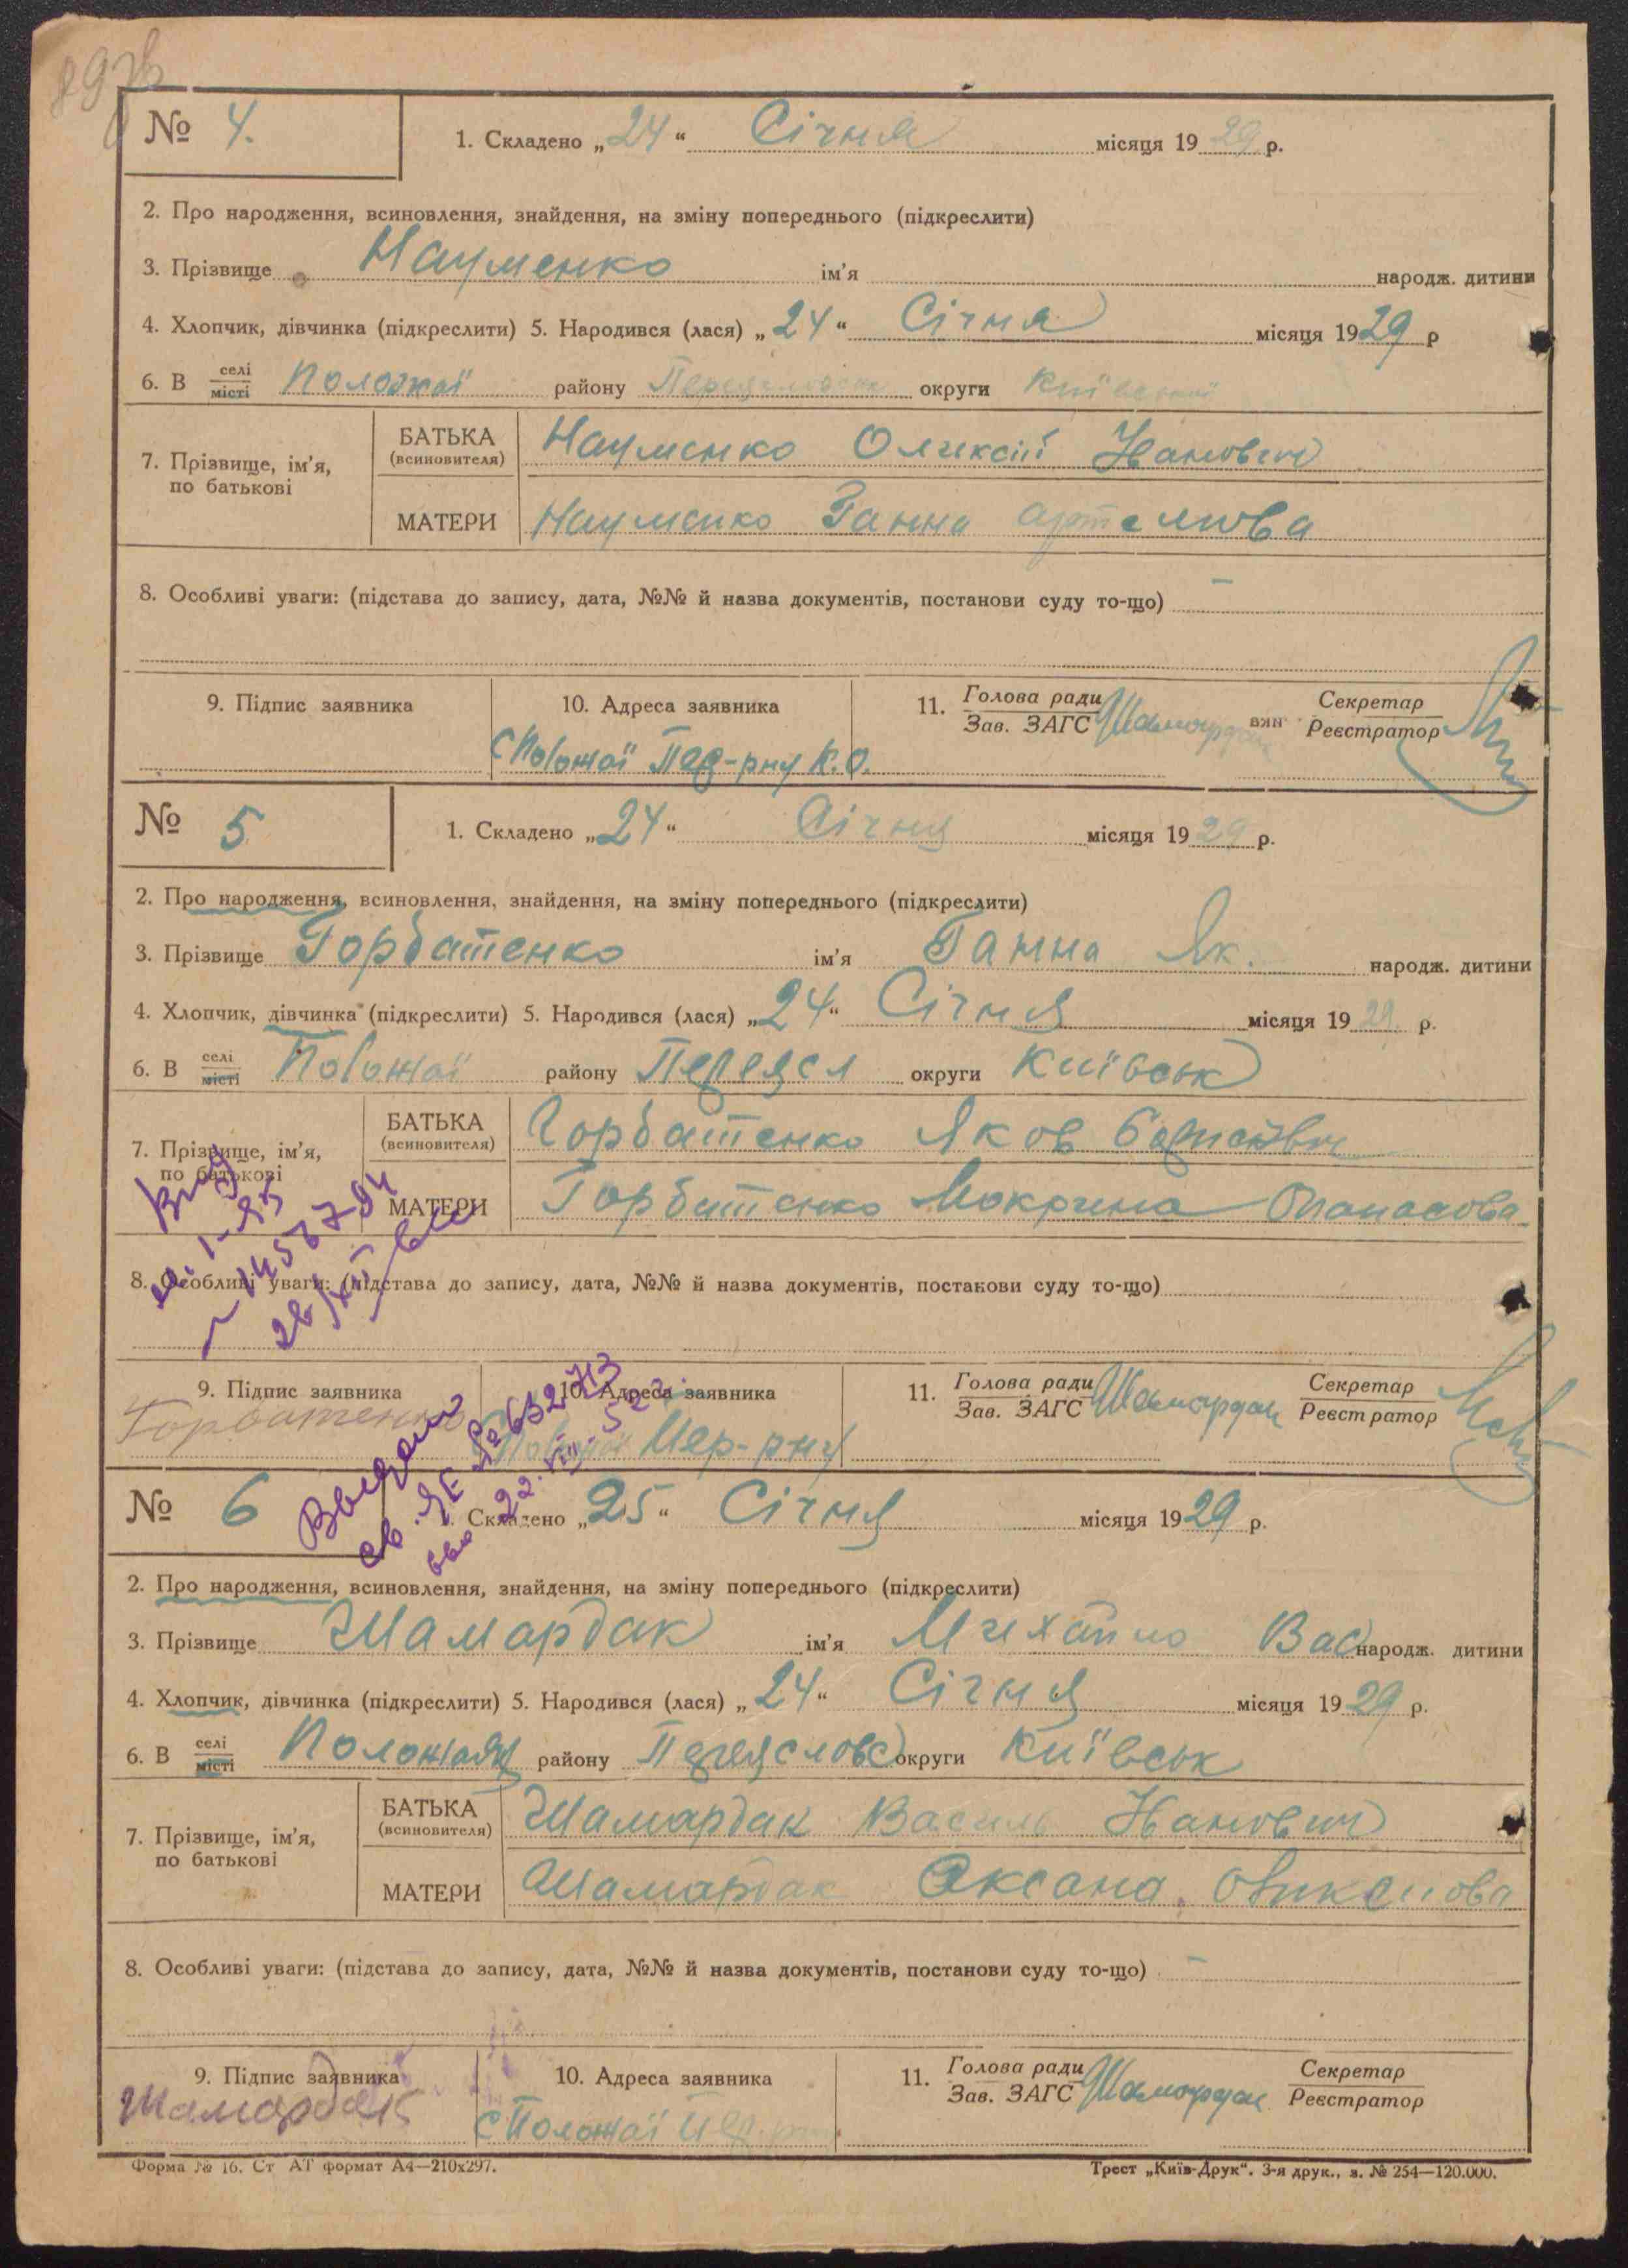 № 4. 1. Складено „24“ Січня місяця 1929 р.
2. Про народження, всиновлення, знайдення, на зміну попереднього (підкреслити)
3. Прізвище Науменко ім'я народж. дитини
4. Хлопчик, дівчинка (підкреслити) 5. Народився (лася) „24“ Січня місяця 1929 р
6. В селі місті Положаї району округи Київської
7. Прізвище, ім'я, по батькові
БАТЬКА (всиновителя) Науменко Олексій Іванович
МАТЕРИ Науменко Ганна Артемова
8. Особливі уваги: (підстава до запису, дата, №№ й назва документів, постанови суду то-що) –
9. Підпис заявника 10. Адреса заявника 11. Голова ради Зав. ЗАГС Шамардак Секретар Реєстратор
с Положаї Пер-рну К.О.
№ 5 1. Складено „24“ Січня місяця 1929 р.
2. Про народження, всиновлення, знайдення, на зміну попереднього (підкреслити)
3. Прізвище Горбатенко ім'я Ганна Як. народж. дитини
4. Хлопчик, дівчинка (підкреслити) 5. Народився (лася) „24“ Січня місяця 1929 р.
6. В селі місті Положаї району Переясл округи Київськ
7. Прізвище, ім'я, по батькові
БАТЬКА (всиновителя) Горбатенко Яков Борисович
МАТЕРИ Горбатенко Мокрина Опанасова
8. Особливі уваги: (підстава до запису, дата, №№ й назва документів, постанови суду то-що)
9. Підпис заявника 10. Адреса заявника 11. Голова ради Зав. ЗАГС Шамардак Секретар Реєстратор
Горбатенко Положаї Пер-рну
№ 632713
№ 6 1. Складено „25“ Січня місяця 1929 р.
2. Про народження, всиновлення, знайдення, на зміну попереднього (підкреслити)
3. Прізвище Шамардак ім'я Михайло Вас народж. дитини
4. Хлопчик, дівчинка (підкреслити) 5. Народився (лася) „24“ Січня місяця 1929 р.
6. В селі місті Положаях району Переясловс округи Київськ
7. Прізвище, ім'я, по батькові
БАТЬКА (всиновителя) Шамардак Василь Іванович
МАТЕРИ Шамардак Оксана
8. Особливі уваги: (підстава до запису, дата, №№ й назва документів, постанови суду то-що) –
9. Підпис заявника 10. Адреса заявника 11. Голова ради Зав. ЗАГС Шамардак Секретар Реєстратор
Шамардак с Положаї Пер.
Форма № 16. Ст АТ формат А4—210х297. Трест „Київ-Друк“. 3-я друк., з. № 254—120.000.